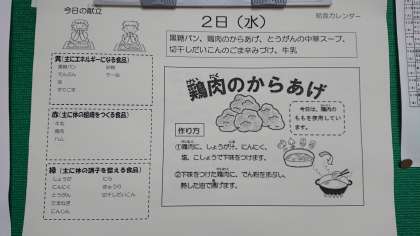 今日の献立
給食カレンダー
2日(水)
黒糖パン、鶏肉のからあげ、とうがんの中華スープ、
切干しだいこんのごま辛みづけ、牛乳
黄(主にエネルギーになる食品)
黒糖パン
でんぷん
油
すりごま
赤(主に体の組織をつくる食品)
牛乳
鶏肉
ハム
緑(主に体の調子を整える食品)
しょうが にら
にんにく きゅうり
とうがん 切干しだいこん
たまねぎ
にんじん
鶏肉のからあげ
作り方
①鶏肉に、しょうが汁、にんにく、
塩、こしょうで下味をつけます。
②下味をつけた鶏肉に、でん粉をまぶし、
熱した油で揚げます。
今日は、鶏肉の
ももを使用してい
ます。